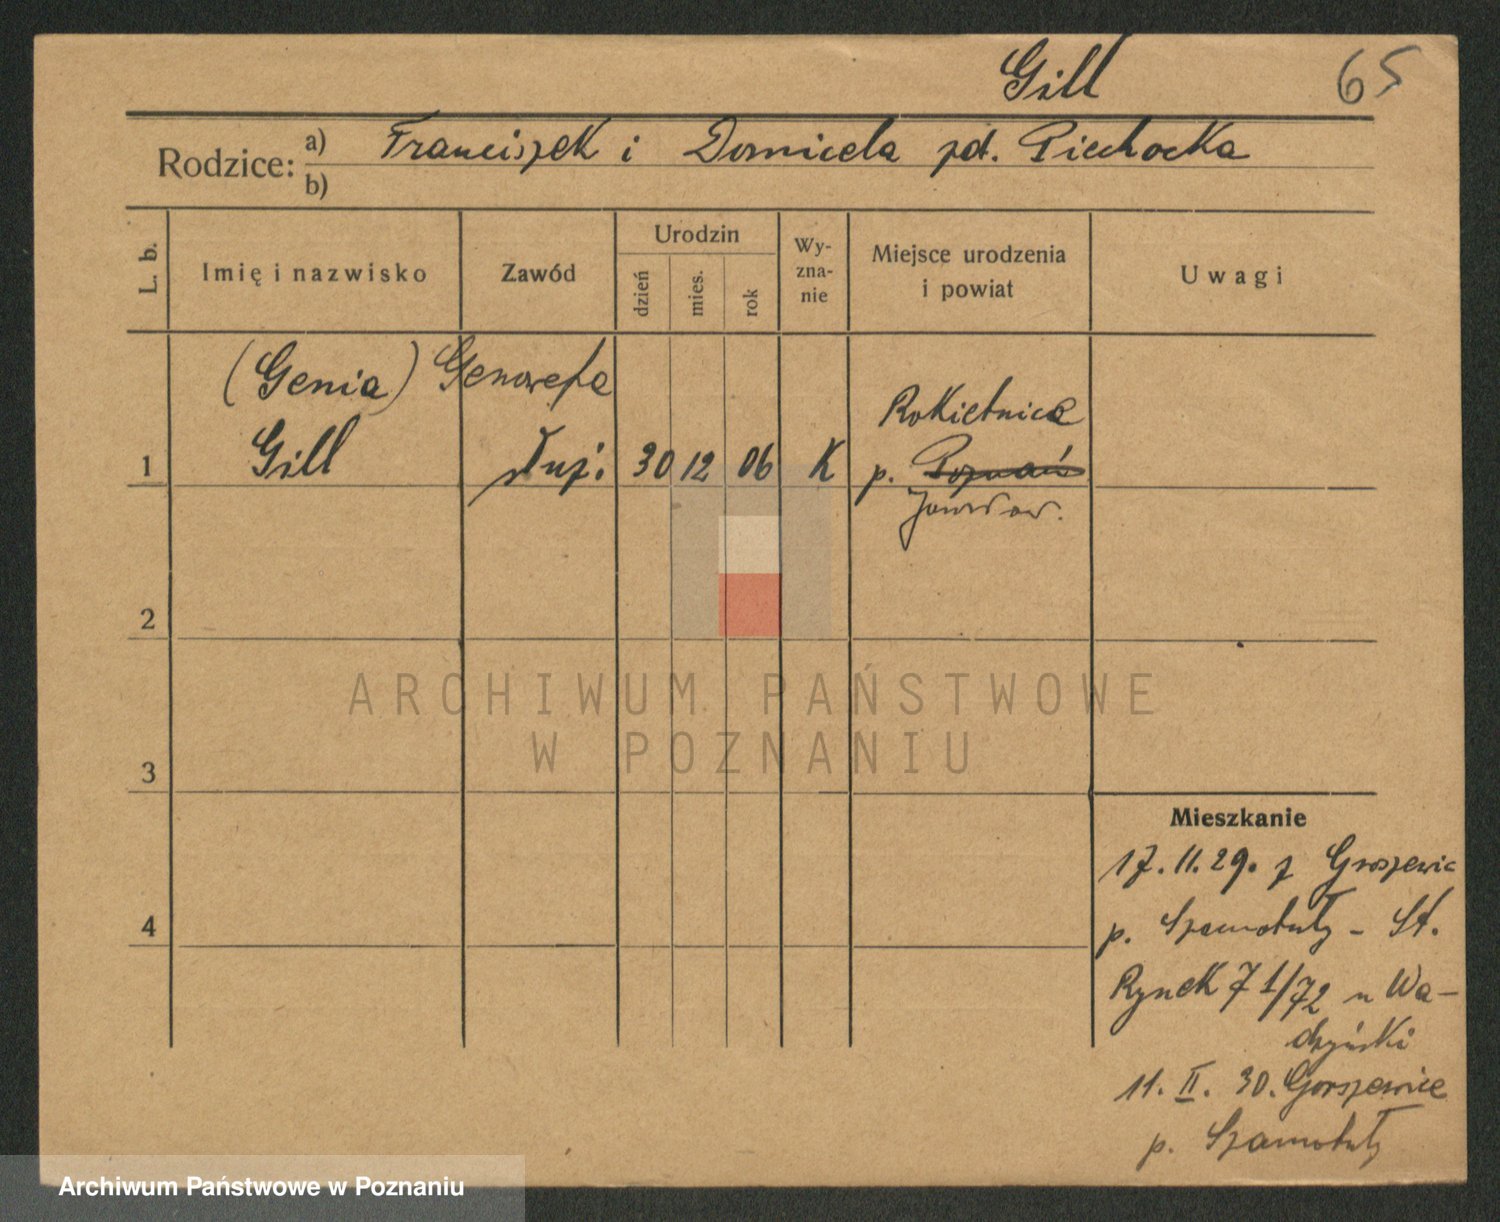 Gill 65
Rodzice: a) Franciszek i Domicela zd. Piechocka
b)
L. b. Imię i nazwisko Zawód Urodzin dzień mies. rok Wyznanie Miejsce urodzenia i powiat Uwagi
(Genia) Genowefa
Rokietnica
1 Gill służ. 30 12 06 K p. Poznań
2
ARCHIWUM PAŃSTWOWE
W POZNANIU
3
Mieszkanie
17.11.29. z Groszewic
4 p. Szamotuły - St.
Rynek 71/72 u Wa-
dzyński
11. II. 30. Gorszewice
p. Szamotuły
Archiwum Państwowe w Poznaniu